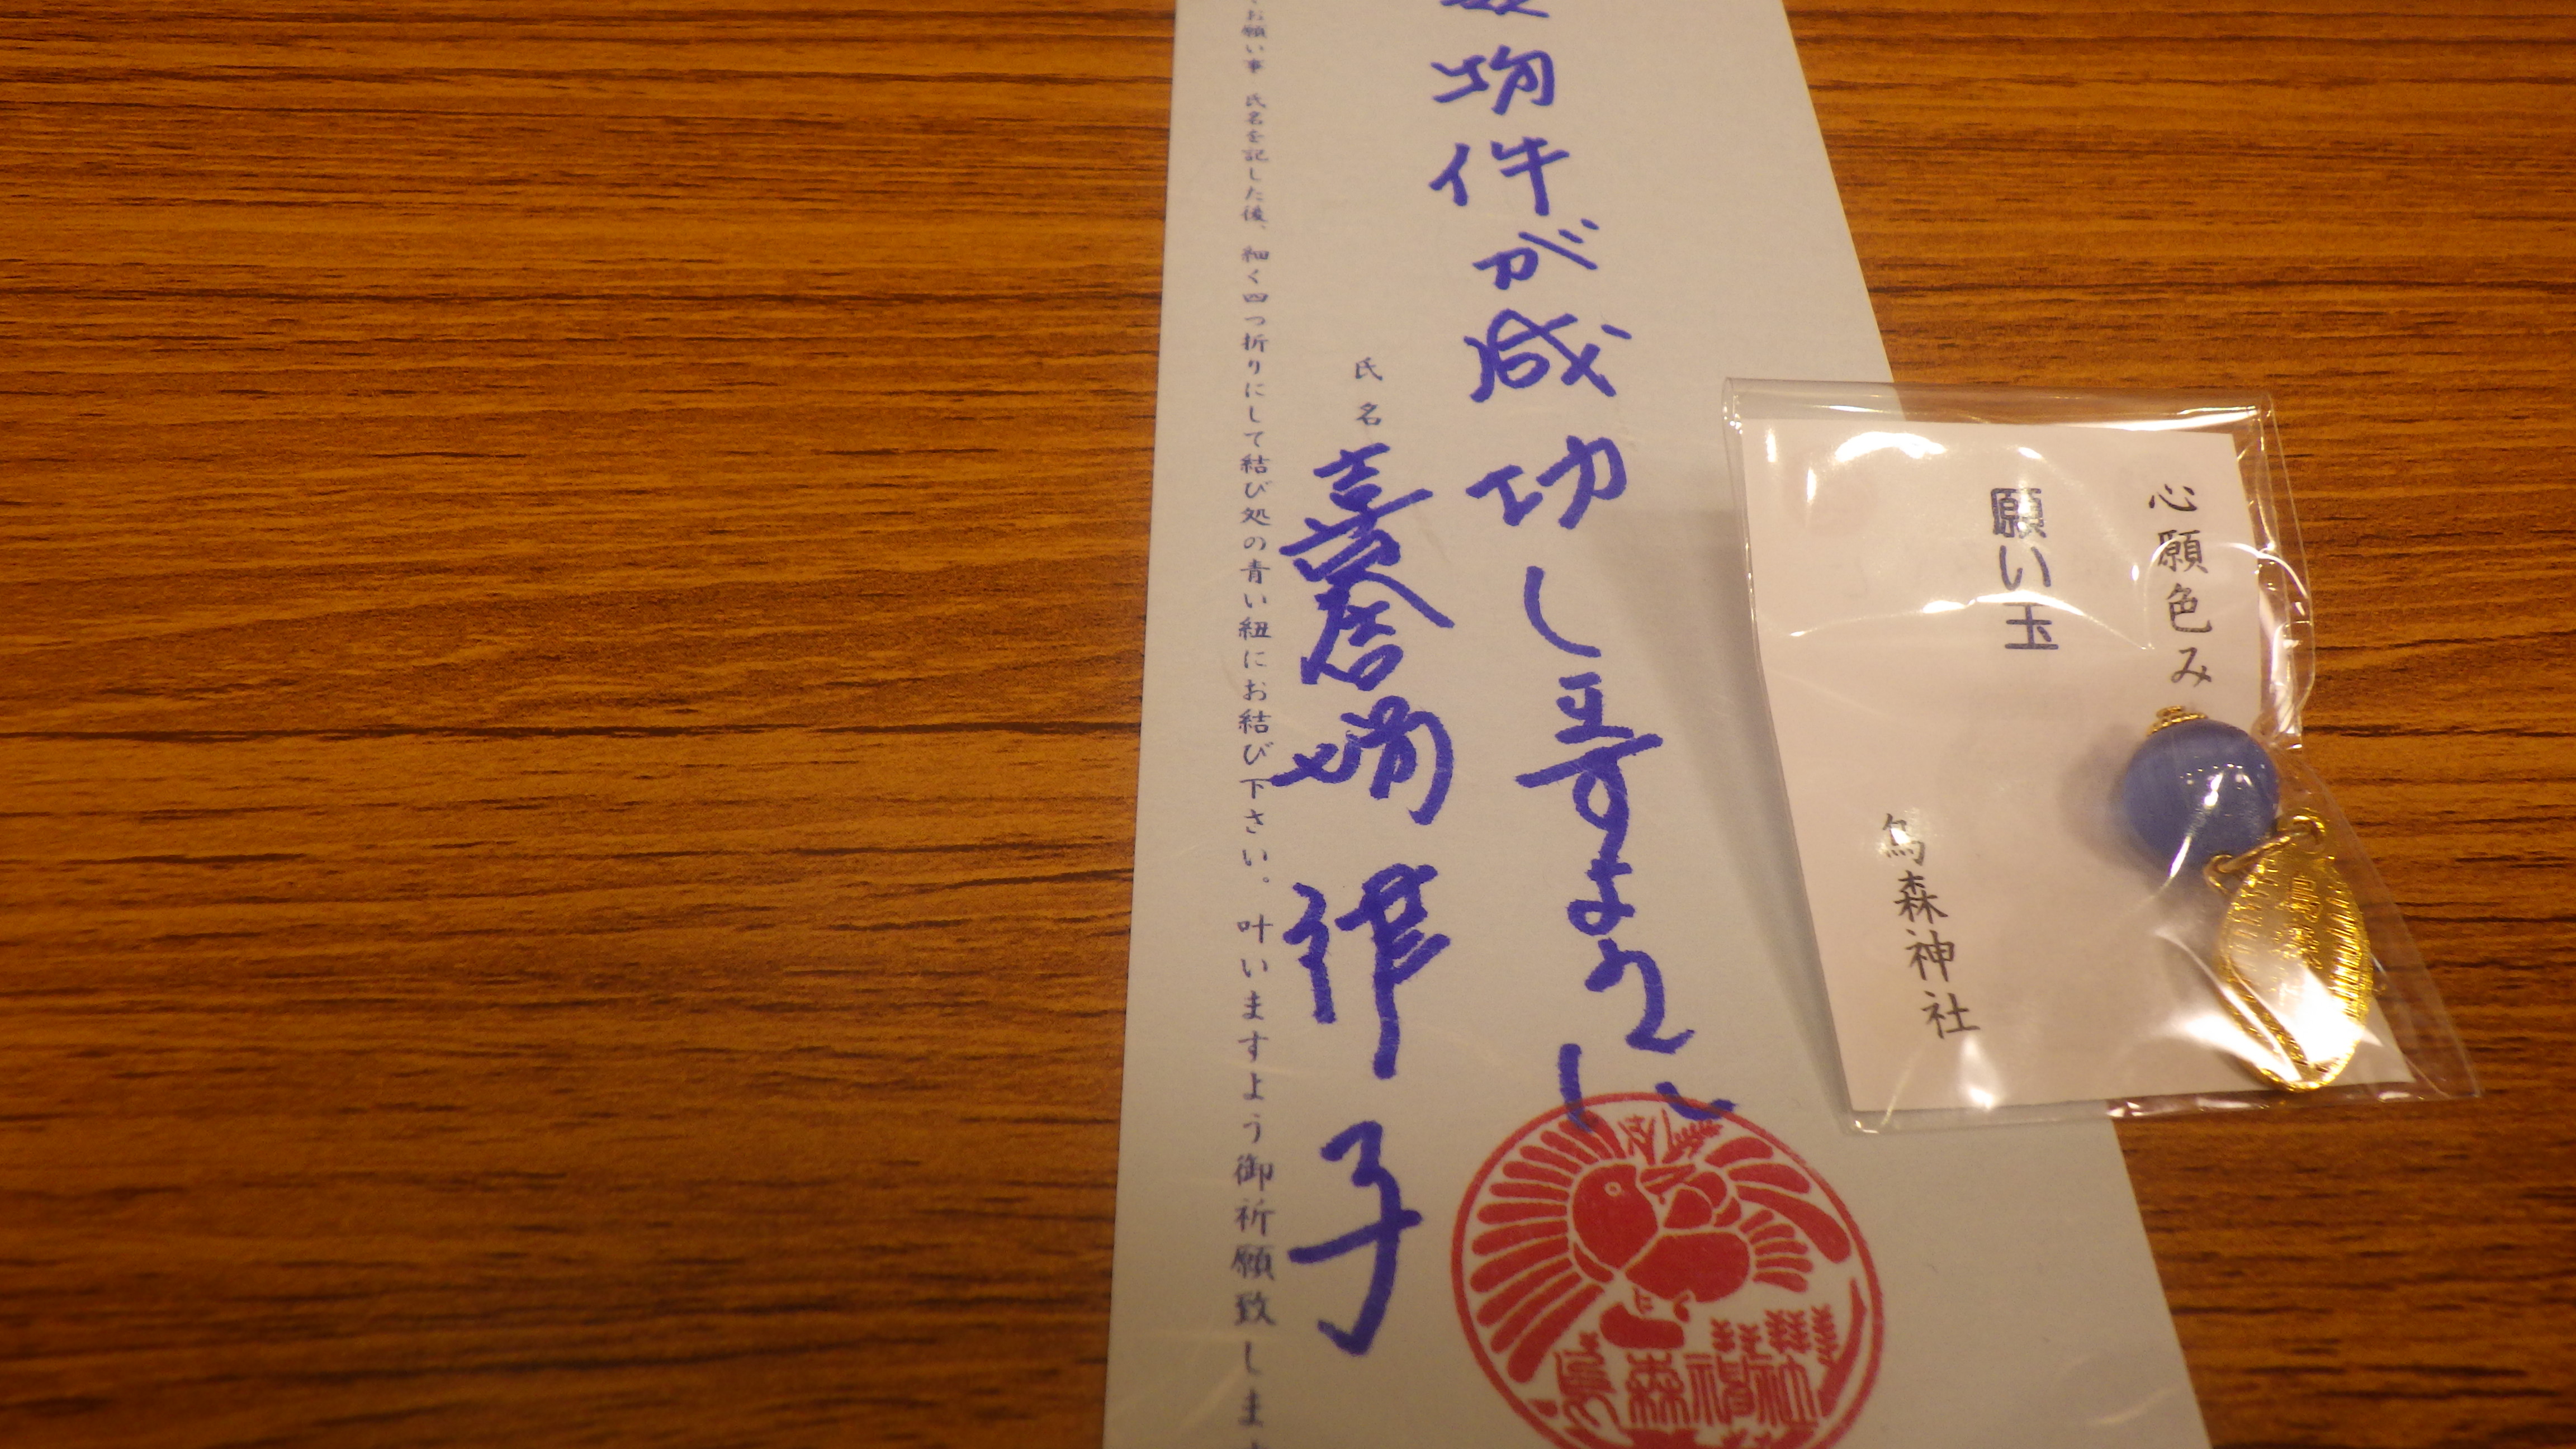 心願色み
願い玉
烏森神社
物件が成功しますように
氏名
律子
お願い事 氏名を記した後、細く四つ折りにして結び処の青い紐にお結び下さい。叶いますよう御祈願致しま
烏森神社